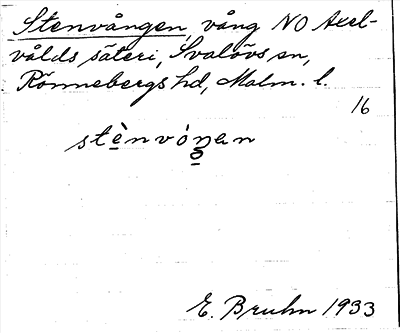 Stenvången, vång NO Axel-
volds säteri, Svalövs sn,
Rönnebergs hd, Malm. l.
16
stènvóŋen
E. Bruhn 1933